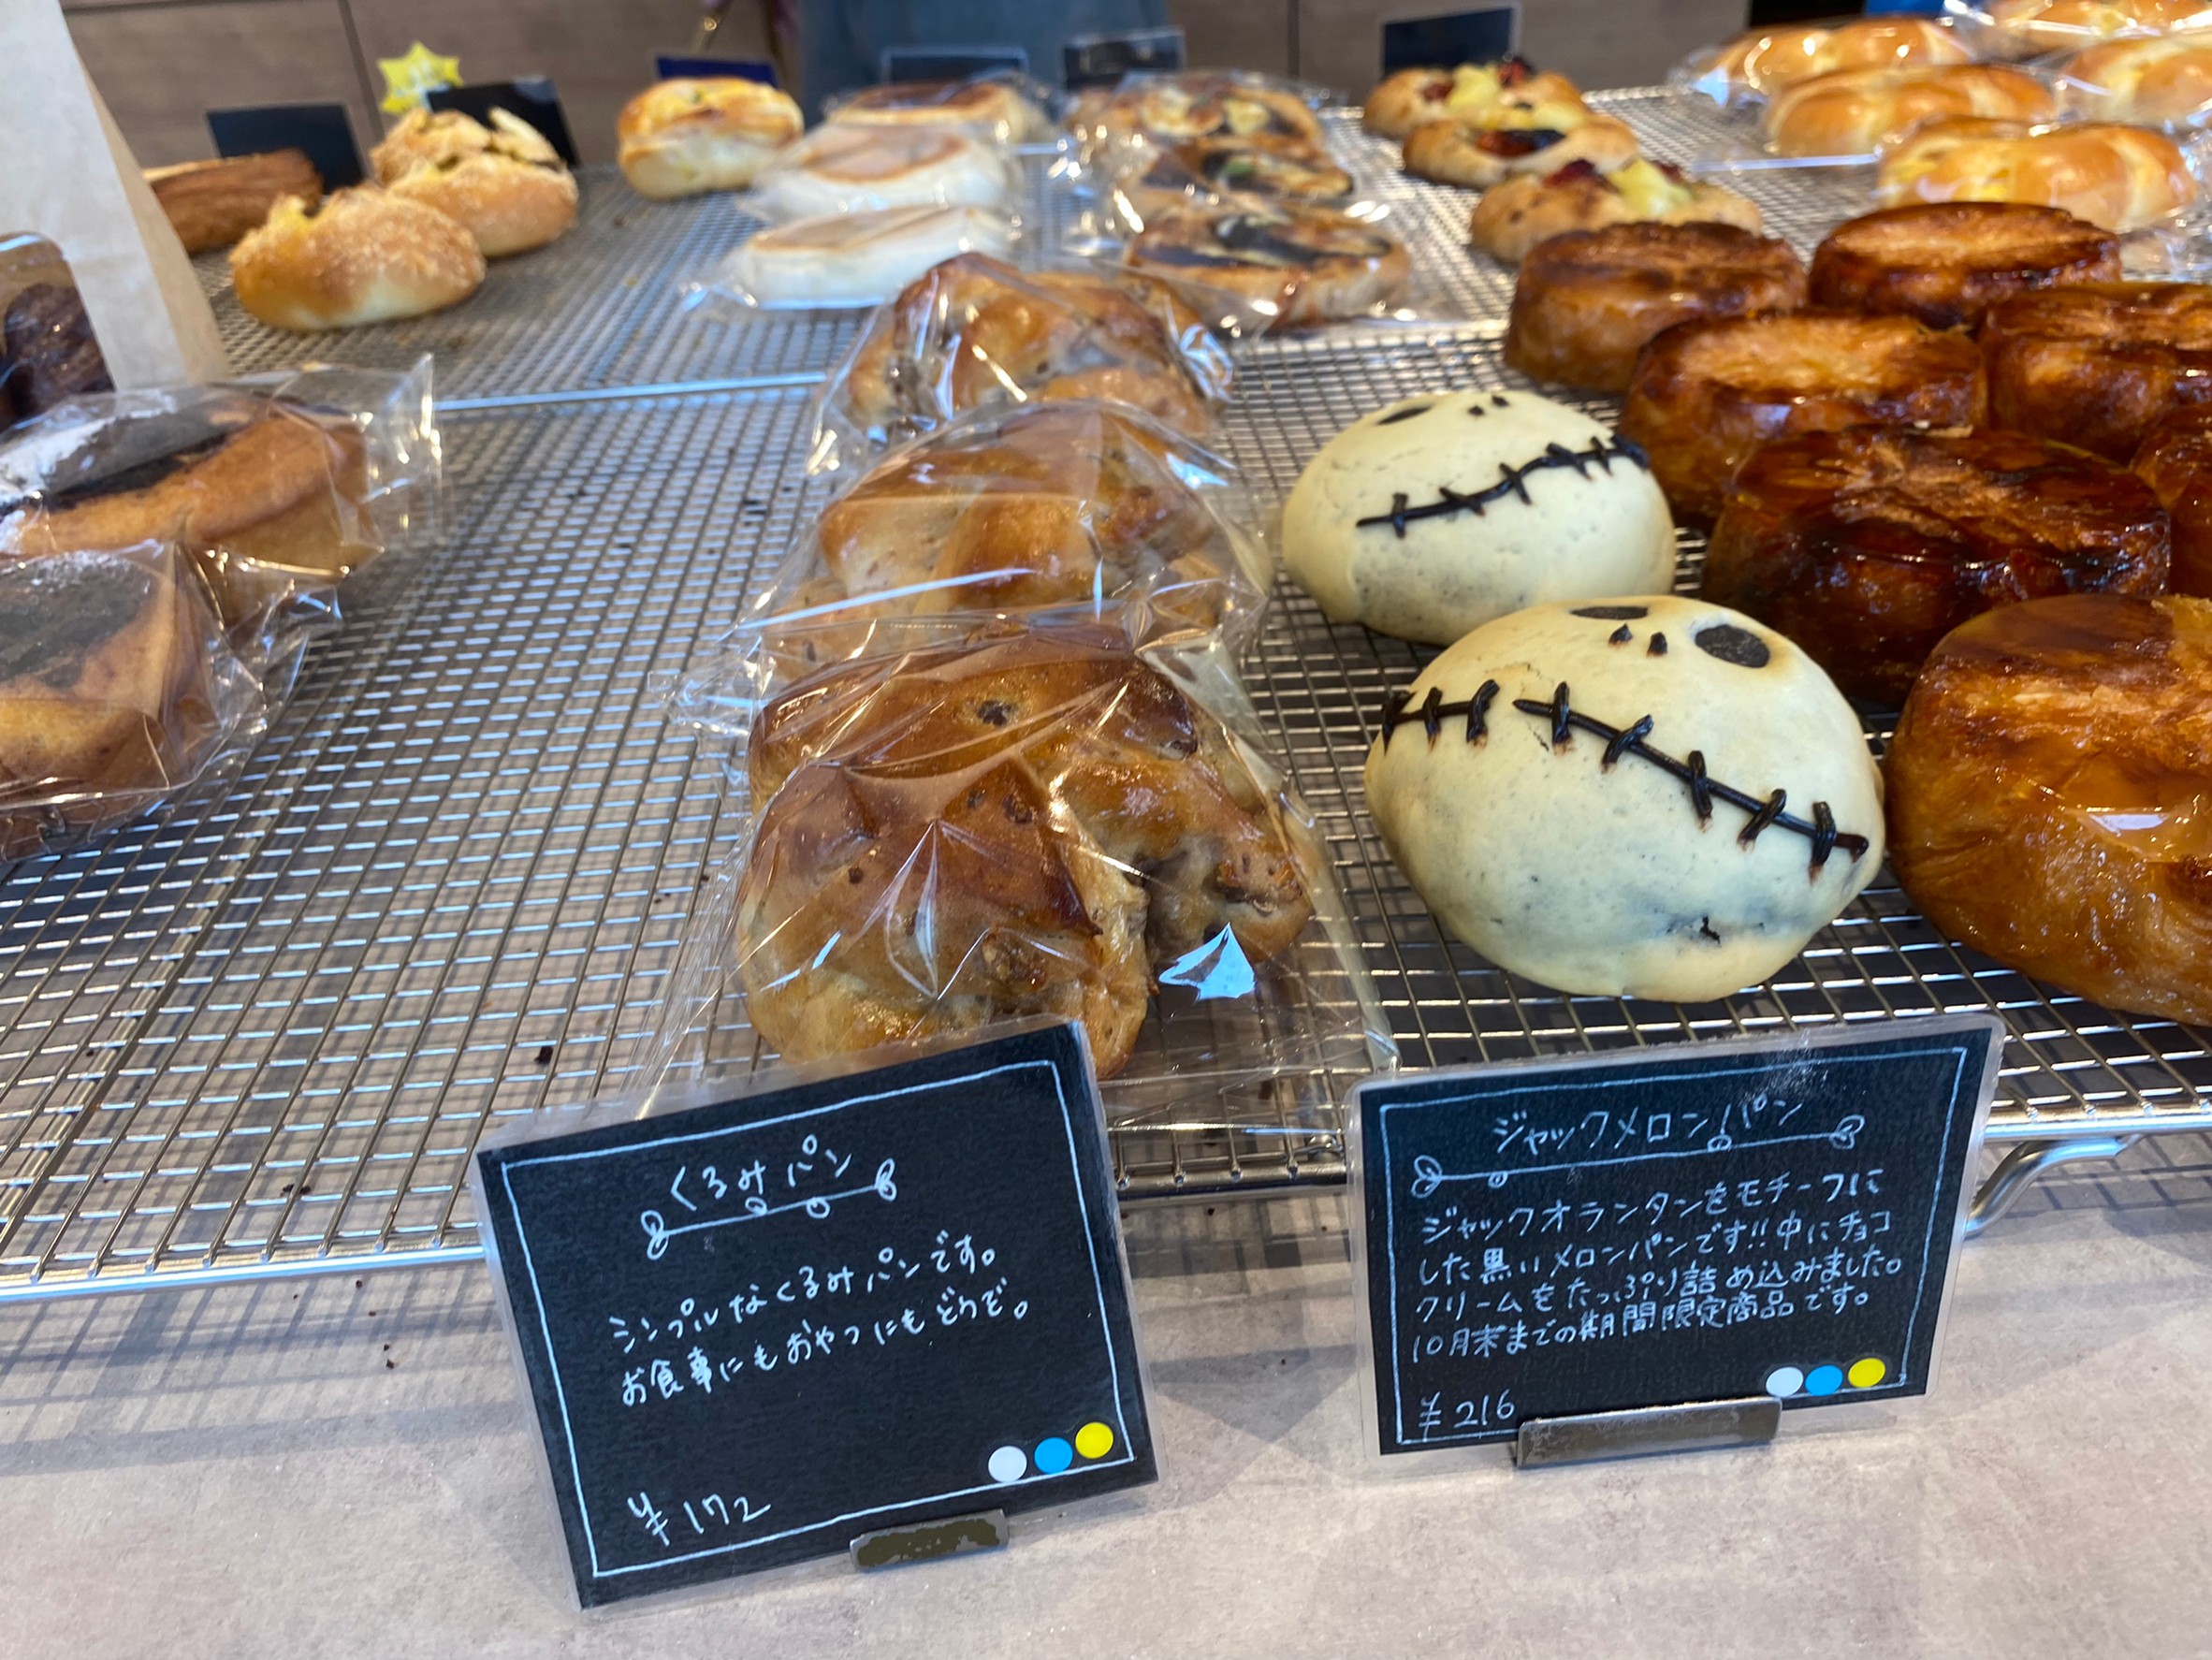 くるみパン
シンプルなくるみパンです。
お食事にもおやつにもどうぞ。
¥172
ジャックメロンパン
ジャックオランタンをモチーフに
した黒いメロンパンです!!中にチョコ
クリームをたっぷり詰め込みました。
10月末までの期間限定商品です。
¥216